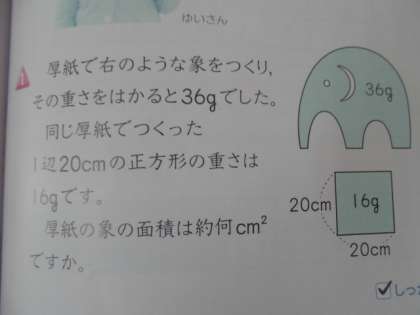 ゆいさん
1
厚紙で右のような象をつくり,
その重さをはかると36gでした。
同じ厚紙でつくった
1辺20cmの正方形の重さは
16gです。
厚紙の象の面積は約何cm²
ですか。
36g
16g
20cm
20cm
しっ